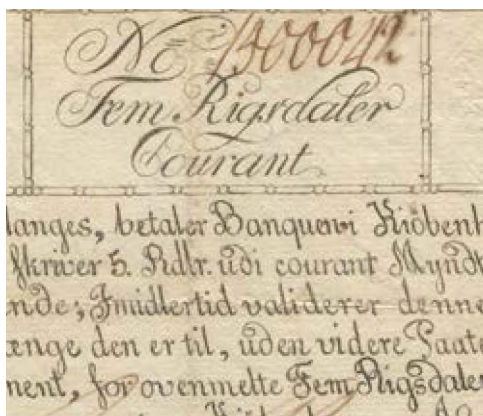 No 1300042
Fem Rigsdaler
Courant
langes, betaler Banquen i Kiöbenh
skriver 5. Rdlr. udi courant Myndt
nde; Imidlertid validerer denne
ænge den er til, uden videre Paate
ment, for ovenmelte Fem Rigsdaler